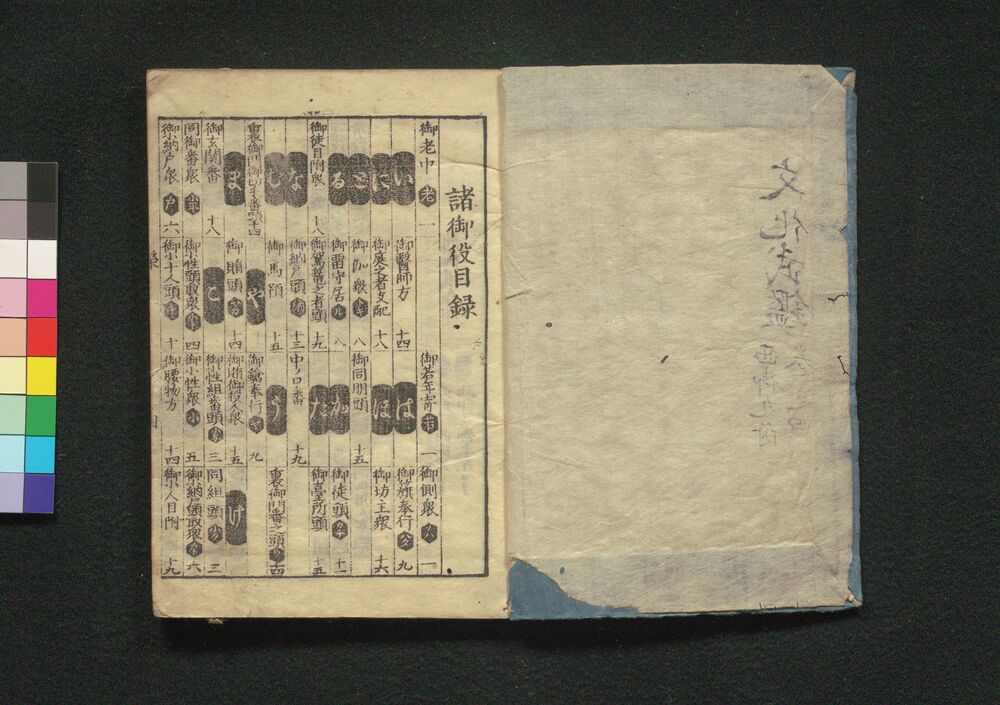 文化武鑑
西御丸附
諸御役目録
御老中 老 一
御若年寄 若 一
御側衆 一
い
御醫師方 十四
は
御籏奉行 ハタ 九
に
御庭之者支配 十八
ほ
御坊主衆 十六
と
御伽衆 トキ 八
御同朋頭 十五
る
御留守居 ル 八
か
御徒頭 カチ 十一
御徒目附衆 十八
御駕籠之者頭 十九
た
御臺所頭 十五
な
御納戸頭 十三
中ノ口番 十九
し
御馬預 十五
う
裏御門番之頭 十四
裏御門御切手番頭 十四
や
御鎗奉行 ヤ 九
ま
御賄頭 十四
御賄御役人衆 十五
け
御玄関番 十八
こ
御小性組番頭 三
同組頭 三
同御番衆
御小性頭取衆 四
御小性衆 小 五
御小納戸頭取衆 六
御小納戸衆 戸 六
御小十人頭 十
御腰物方 十四
御小人目附 十九